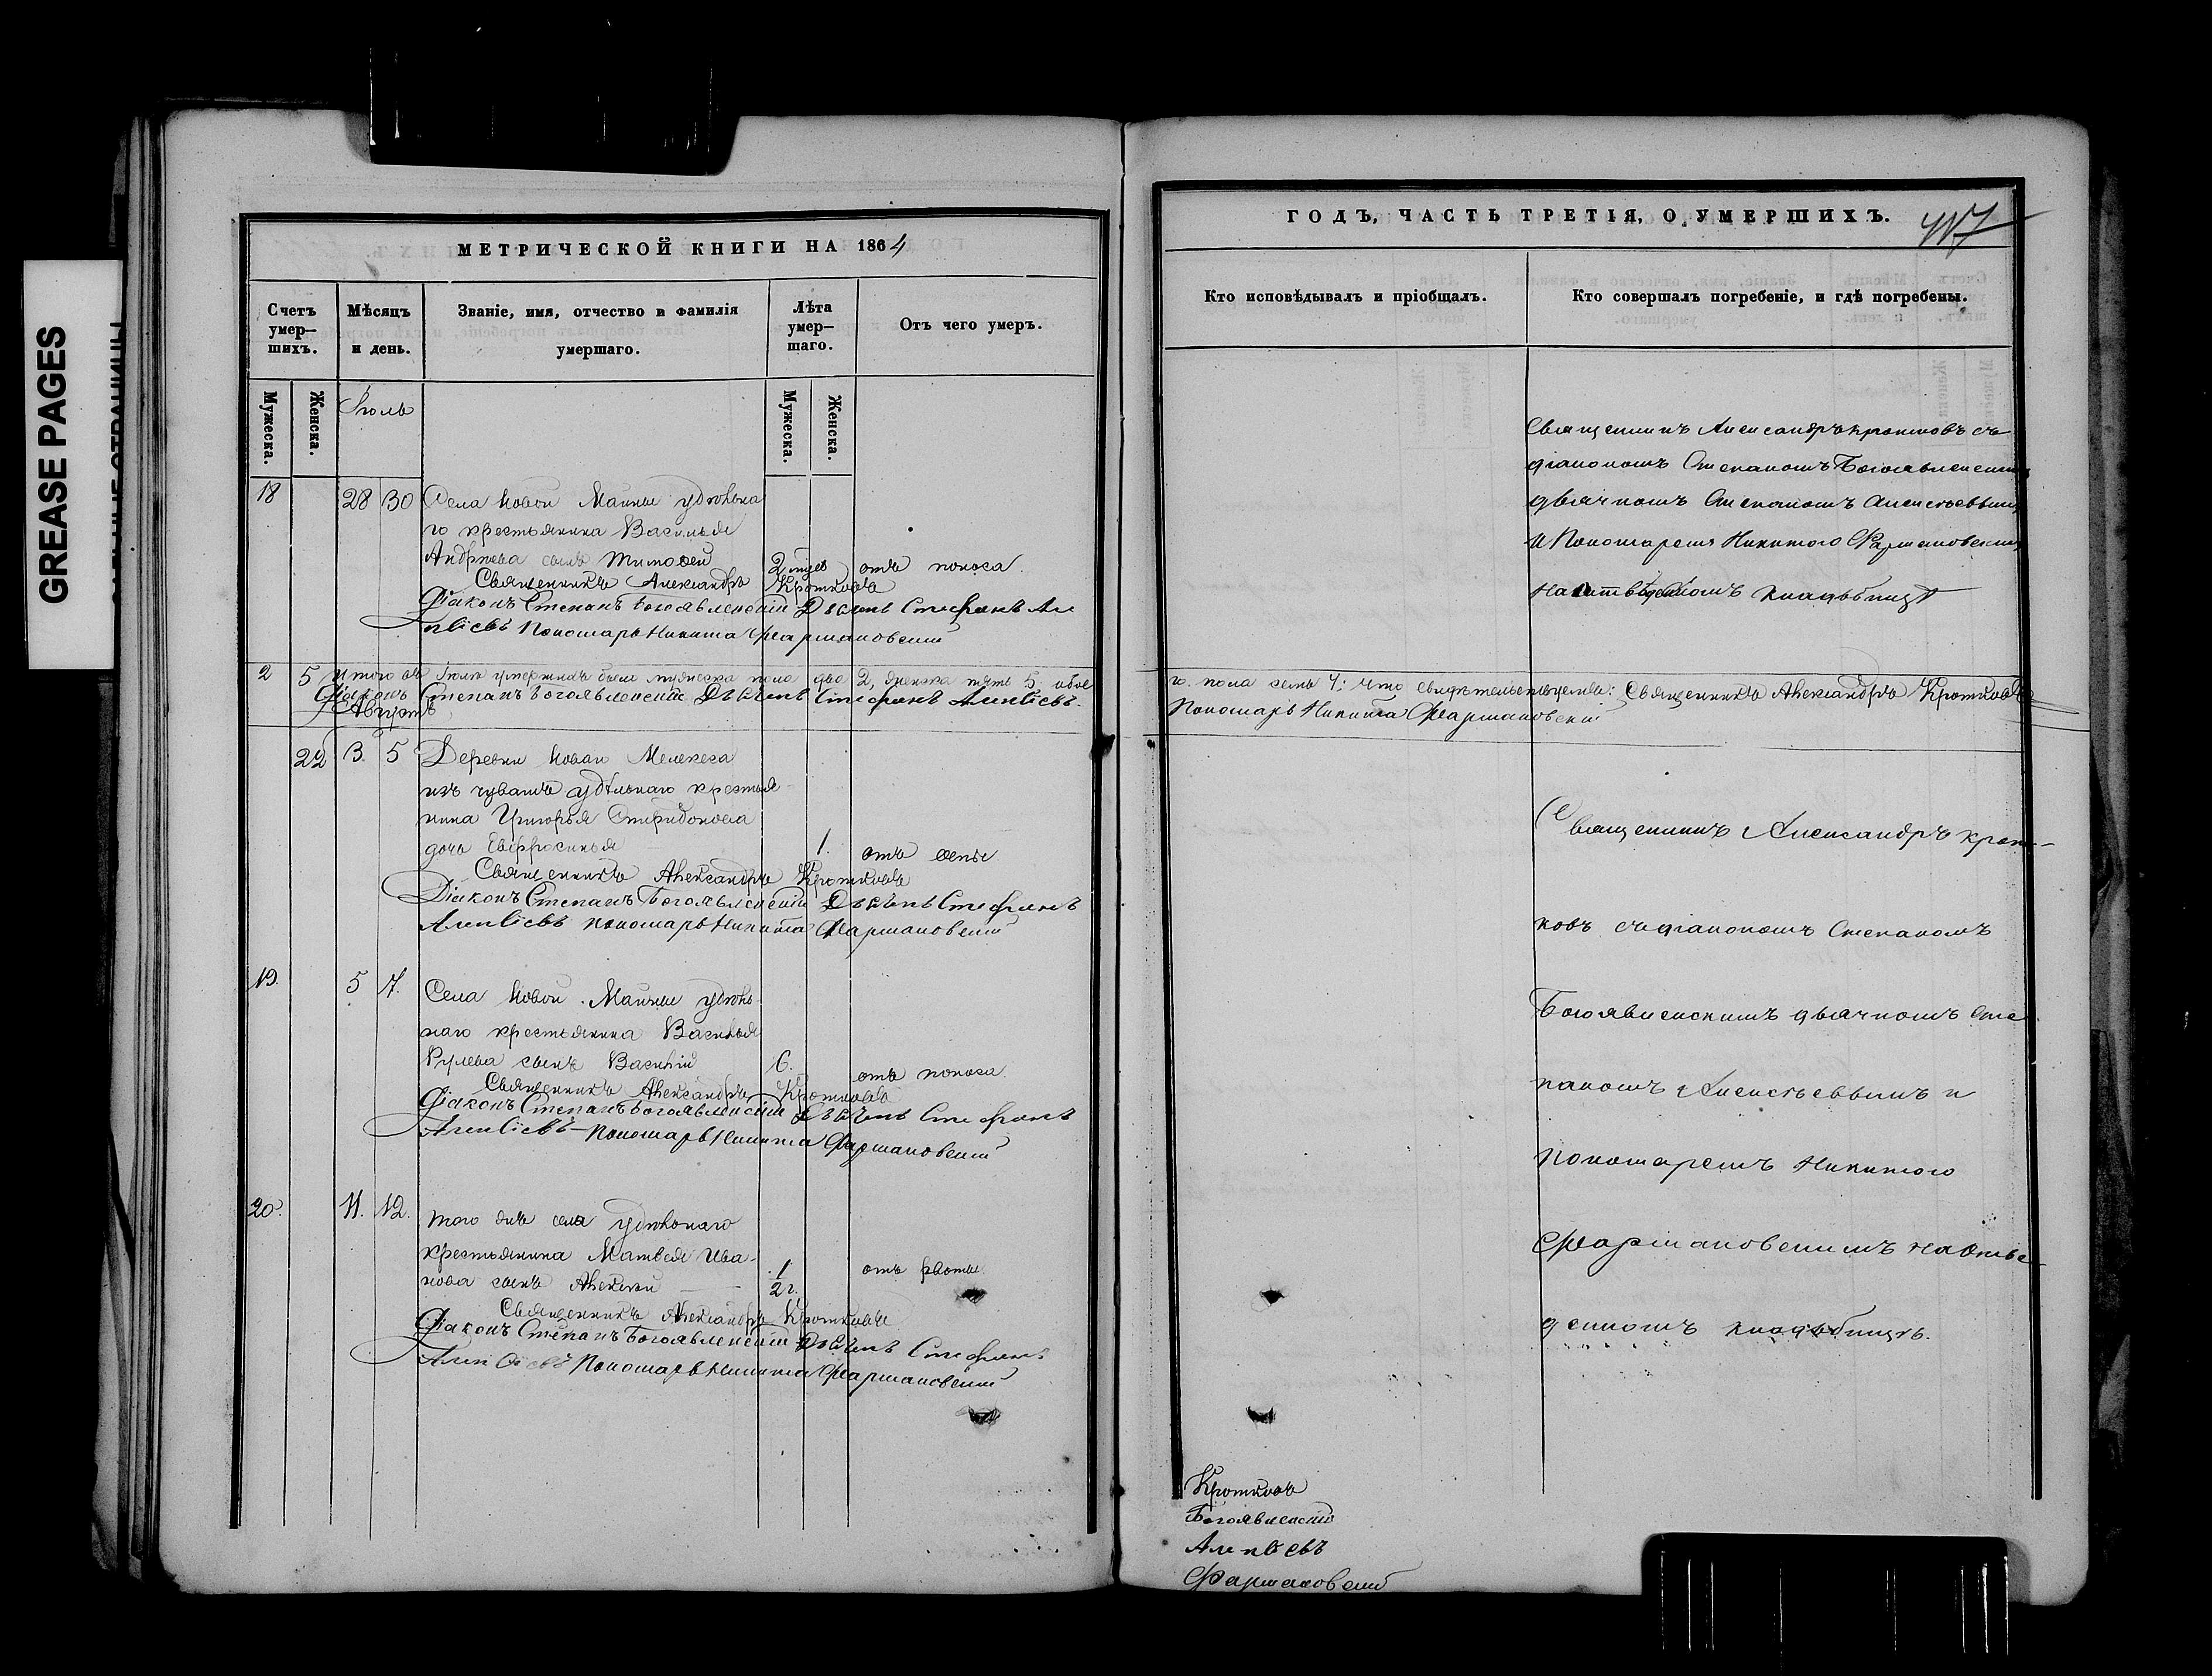 GREASE PAGES
МЕТРИЧЕСКОЙ КНИГИ НА 1864
Счетъ умер—шихъ.
Мѣсяцъ и день.
Званіе, имя, отчество и фамилія умершаго.
Лѣта умер—шаго.
Отъ чего умеръ.
Мужеска.
Женска.
Іюль
Мужеска.
Женска.
18 28 30 Села Новой Майны удѣльна
го крестьянина Василья
Андреева сынъ Тимоѳей 2 отъ поноса.
Священникъ Александръ Кротковъ
Діаконъ Степанъ Богоявленскій Дьячекъ Стефанъ Але
ксіевъ Пономарь Никита Фармаковскій
2 5 Итого въ Іюлѣ умершихъ было мужеска пола два 2, женска пять 5. обое
Діаконъ Степанъ Богоявленскій Дьячекъ Стефанъ Алексіевъ.
Августъ
22 3. 5 Деревни Новаго Мелекеса
изъ чувашъ удѣльнаго крестья
нина Григорья Спиридонова
дочь Евфросинья 1. отъ оспы.
Священникъ Александръ Кротковъ
Діаконъ Степанъ Богоявленскій Дьячекъ Стефанъ
Алексіевъ Пономарь Никита Фармаковскій
19. 5 7. Села Новой Майны удѣль
наго крестьянина Василья
сынъ Василій 6. отъ поноса.
Священникъ Александръ Кротковъ
Діаконъ Степанъ Богоявленскій Дьячекъ Стефанъ
Алексіевъ Пономарь Никита Фармаковскій
20. 11. 12. того же села удѣльнаго
крестьянина Матвея Ива-
нова сынъ Алексѣй 1/2 г. отъ рвоты.
Священникъ Александръ Кротковъ
Діаконъ Степанъ Богоявленскій Дьячекъ Стефанъ
Алексіевъ Пономарь Никита Фармаковскій
ГОДЪ, ЧАСТЬ ТРЕТІЯ, О УМЕРШИХЪ.
Кто исповѣдывалъ и пріобщалъ.
Кто совершалъ погребеніе, и гдѣ погребены.
Священникъ Александръ Кротковъ съ
діакономъ Степаномъ Богоявленским
дьячкомъ Степаномъ Алексѣевымъ
и Пономаремъ Никитою Фармаковским
на отведенномъ кладбищѣ
го пола семь 7; что свидѣтельствуемъ: Священникъ Александръ Кротковъ
Пономарь Никита Фармаковскій
Священникъ Александръ Крот-
ковъ съ діакономъ Степаномъ
Богоявленскимъ дьячкомъ Сте
паномъ Алексѣевымъ и
пономаремъ Никитою
Фармаковскимъ на отве-
денномъ кладбищѣ.
Кротковъ
Богоявленскій
Алексіевъ
Фармаковскій